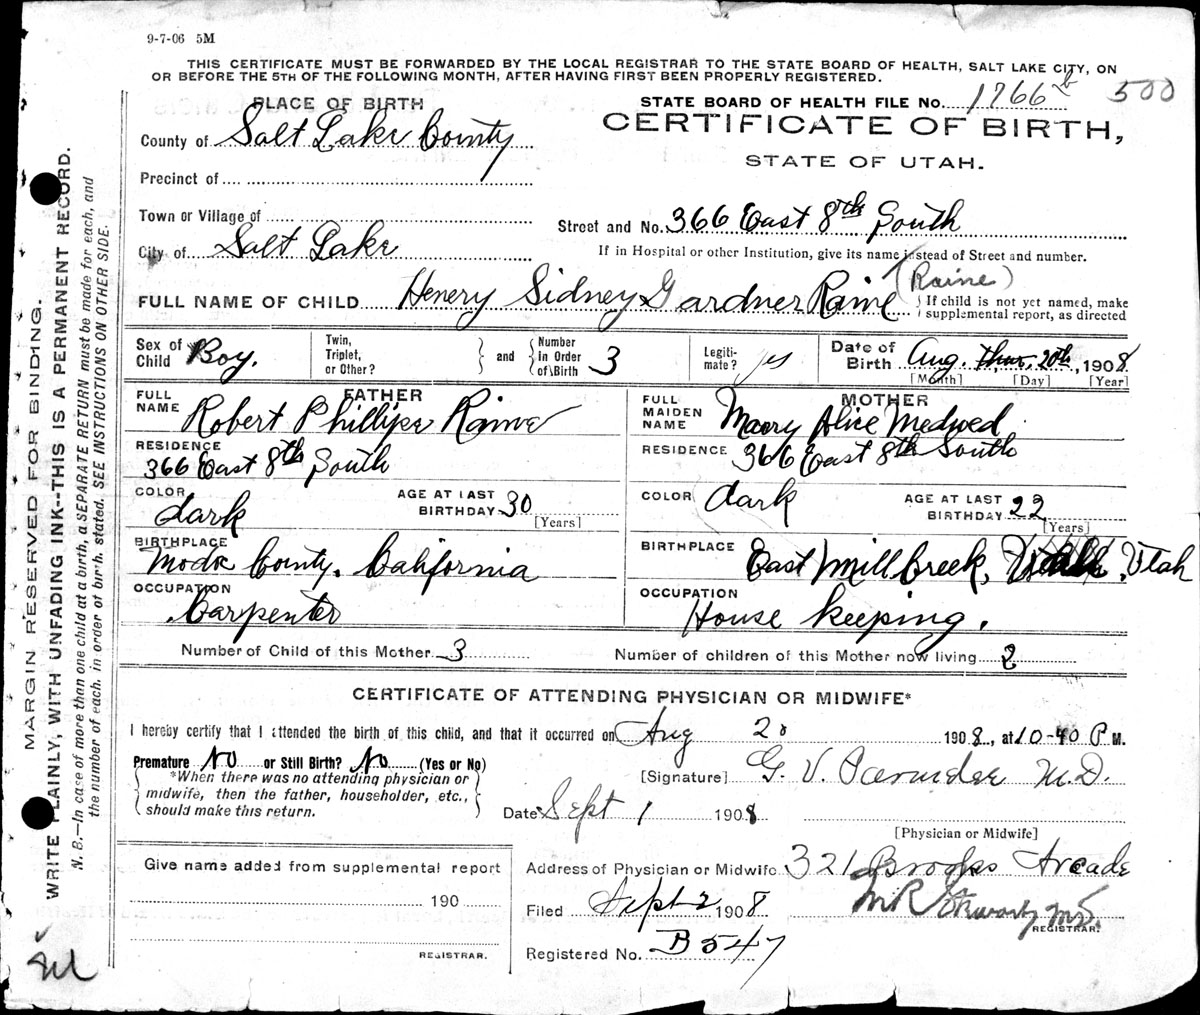 9-7-06 5M
THIS CERTIFICATE MUST BE FORWARDED BY THE LOCAL REGISTRAR TO THE STATE BOARD OF HEALTH, SALT LAKE CITY, ON
OR BEFORE THE 5TH OF THE FOLLOWING MONTH, AFTER HAVING FIRST BEEN PROPERLY REGISTERED.
PLACE OF BIRTH
STATE BOARD OF HEALTH FILE No. 1766 b 500
County of Salt Lake County
CERTIFICATE OF BIRTH,
STATE OF UTAH.
Precinct of
Town or Village of
Street and No. 366 East 8th South
City of Salt Lake
If in Hospital or other Institution, give its name instead of Street and number.
(Raine)
FULL NAME OF CHILD Henery Sidney Gardner Raine
If child is not yet named, make
supplemental report, as directed
Sex of Child Boy.
Twin, Triplet, or Other?
and
Number in Order of Birth 3
Legiti-mate? yes
Date of Birth Aug. Thur. 20th, 1908
[Month] [Day] [Year]
FATHER
FULL NAME Robert Phillips Raine
RESIDENCE
366 East 8th South
COLOR dark
AGE AT LAST BIRTHDAY 30
[Years]
BIRTHPLACE
Modoc County. California
OCCUPATION
Carpenter
MOTHER
FULL MAIDEN NAME Maory Alice Medwed
RESIDENCE 366 East 8th South
COLOR dark
AGE AT LAST BIRTHDAY 22
[Years]
BIRTHPLACE East Mill Creek, Utah
OCCUPATION
House keeping.
Number of Child of this Mother 3
Number of children of this Mother now living 2
CERTIFICATE OF ATTENDING PHYSICIAN OR MIDWIFE*
I hereby certify that I attended the birth of this child, and that it occurred on Aug 20 1908, at 10-40 P M.
Premature No or Still Birth? No (Yes or No)
*When there was no attending physician or
midwife, then the father, householder, etc.,
should make this return.
[Signature] G. V. M.D.
Date Sept 1 1908
[Physician or Midwife]
Give name added from supplemental report
190
REGISTRAR.
Address of Physician or Midwife 321 Brooks Arcade
Filed Sept 2 1908
M R M.D.
REGISTRAR.
Registered No. B 547
MARGIN RESERVED FOR BINDING.
WRITE PLAINLY, WITH UNFADING INK--THIS IS A PERMANENT RECORD.
N. B.—In case of more than one child at birth, a SEPARATE RETURN must be made for each, and
the number of each, in order of birth, stated. SEE INSTRUCTIONS ON OTHER SIDE.